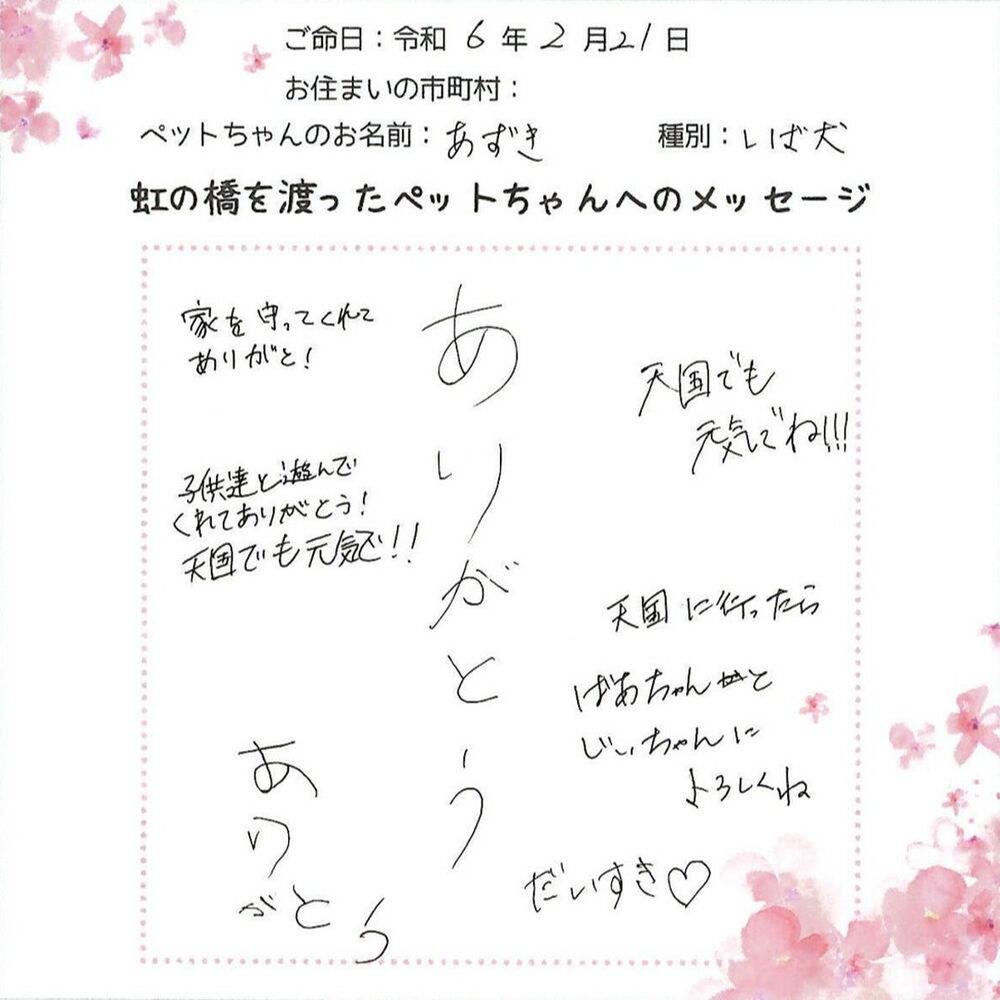 ご命日：令和 6 年 2 月21日
お住まいの市町村：
ペットちゃんのお名前：あずき 種別：しば犬
虹の橋を渡ったペットちゃんへのメッセージ
家を守ってくれて
ありがと!
子供達と遊んで
くれてありがとう!
天国でも元気で!!
ありがとう
ありがとう
天国でも
元気でね!!!
天国に行ったら
ばあちゃんと
じいちゃんに
よろしくね
だいすき♡